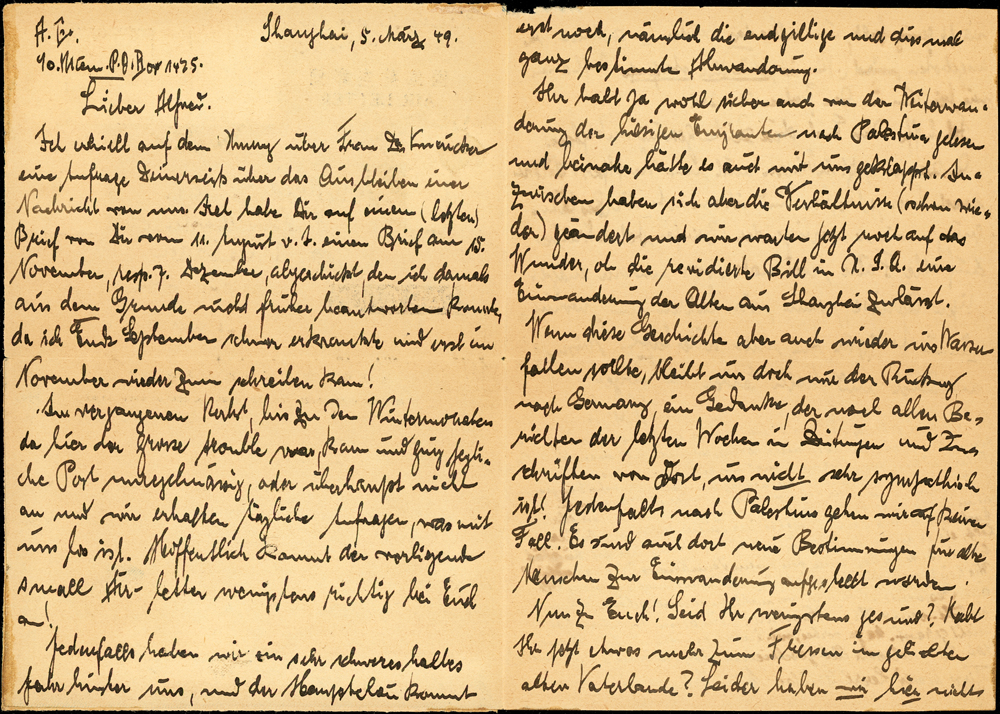 A. Gr.
Shanghai, 5. März 49.
c/o. P.O. Box 1425.
Lieber Alfred.
Ich erhielt auf dem Umweg über Frau Dr.
eine Anfrage Deinerseits über das Ausbleiben einer
Nachricht von uns. Ich habe Dir auf einen (letzten)
Brief von Dir vom 11. August v. J. einen Brief am 15.
November, resp. 7. Dezember, abgeschickt, den ich damals
aus dem Grunde nicht früher beantworten konnte,
da ich Ende September schwer erkrankte und erst im
November wieder zum schreiben kam!
Im vergangenen Herbst, bis zu den Wintermonaten
da hier der grosse trouble war, kam und ging jegli-
che Post unregelmässig, oder überhaupt nicht
an und wir erhalten tägliche Anfragen, was mit
uns los ist. Hoffentlich kommt der vorliegende
small Air-letter wenigstens richtig bei Euch
an!
Jedenfalls haben wir ein sehr schweres halbes
Jahr hinter uns, und der Hauptclou kommt
erst noch, nämlich die endgiltige und diesmal
ganz bestimmte Abwanderung.
Ihr habt ja wohl sicher auch von der Weiterwan-
derung der hiesigen Emigranten nach Palestina gelesen
und beinahe hätte es auch mit uns geklappt. In-
zwischen haben sich aber die Verhältnisse (schon wie-
der) geändert und wir warten jetzt noch auf das
Wunder, ob die revidierte Bill in U.S.A. eine
Einwanderung der Alten aus Shanghai zulässt.
Wenn diese Geschichte aber auch wieder ins Wasser
fallen sollte, bleibt uns doch nur der Rückweg
nach Germany, ein Gedanke, der nach allen Be-
richten der letzten Wochen in Zeitungen und Zu-
schriften von Dort, uns nicht sehr sympathisch
ist! Jedenfalls nach Palestina gehen wir auf keinen
Fall. Es sind auch dort neue Bestimmungen für alte
Menschen zur Einwanderung aufgestellt worden.
Nun zu Euch! Seid Ihr wenigstens gesund? Habt
Ihr jetzt etwas mehr zum Fressen im geliebten
alten Vaterlande? Leider haben wir hier nichts